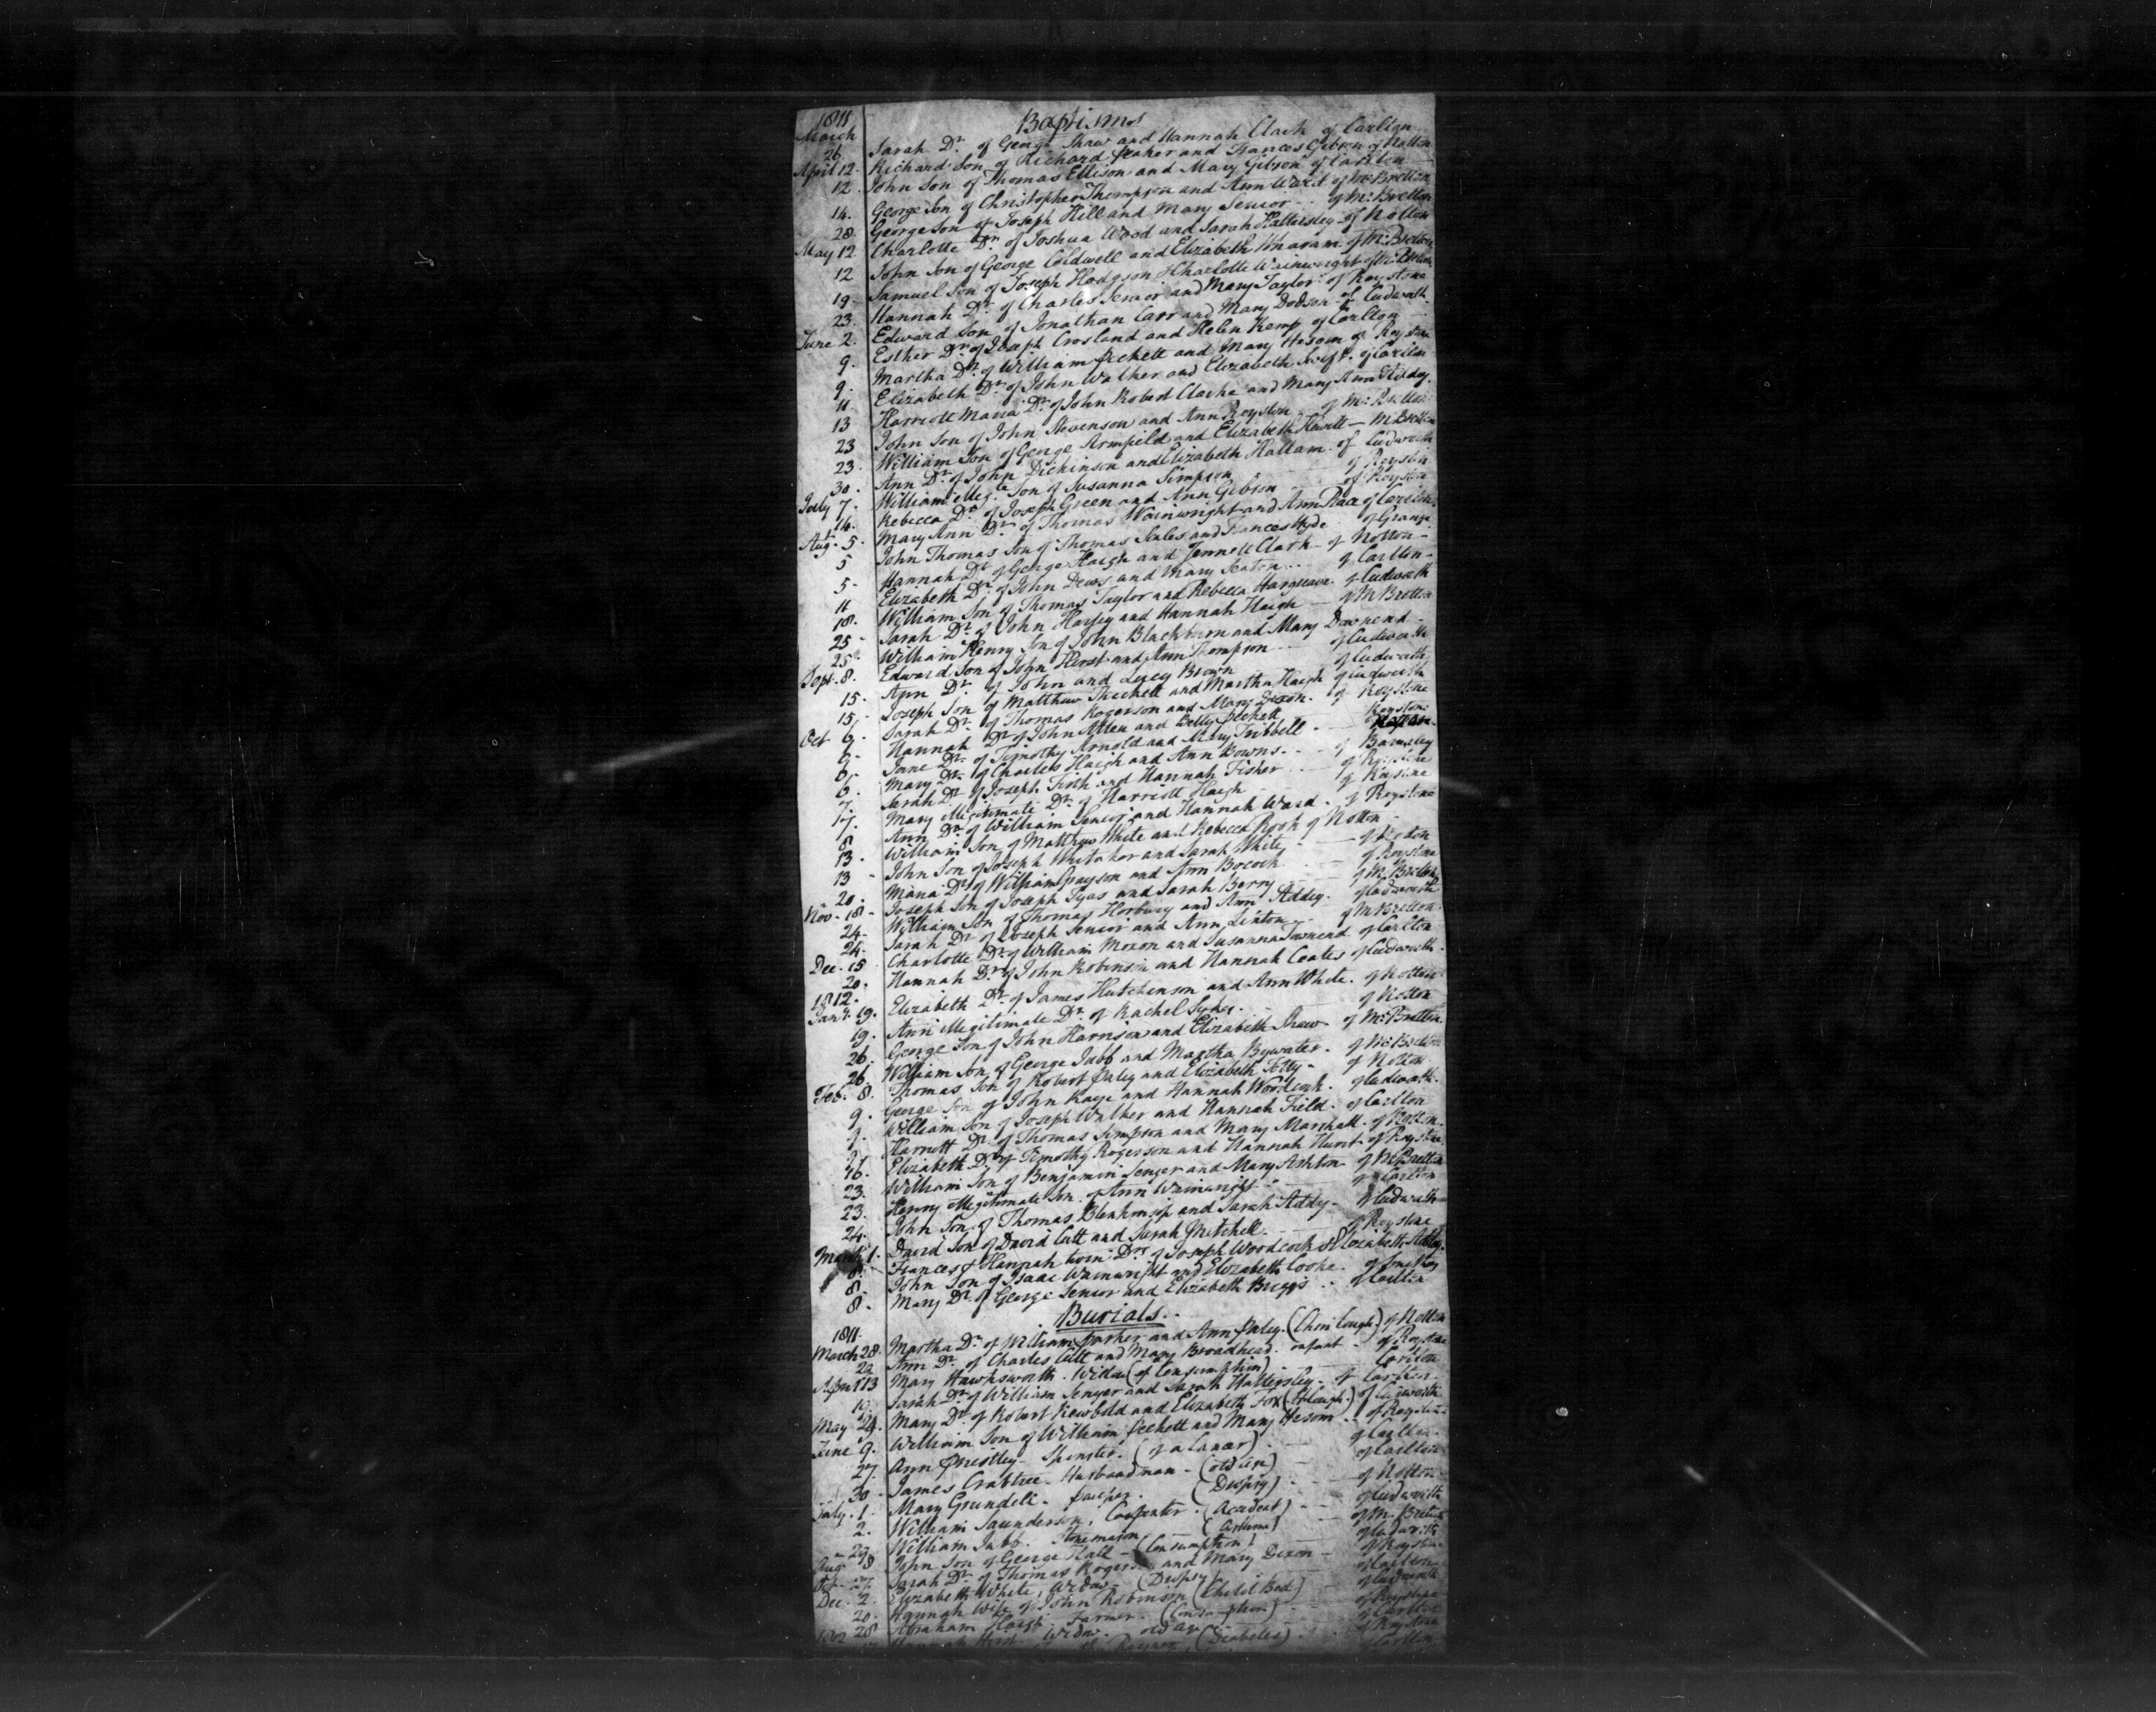 1811 Baptisms
March
26 Sarah Dr. of George Shaw and Hannah Clark of Carlton
April 12. Richard Son of Richard Peaker and Frances Gibson of Notton
12. John Son of Thomas Ellison and Mary Gibson of Carlton
14. George Son of Christopher Thompson and Ann Ward of Mk Bretton
28. George Son of Joseph Hill and Mary Senior of Mk Bretton
May 12. Charlotte Dr. of Joshua Wood and Sarah Hattersley of Notton
12 John Son of George Caldwell and Elizabeth Wharam of Mk Bretton
19. Samuel Son of Joseph Hodgson & Charlotte Wainwright of Mk Bretton
23. Hannah Dr. of Charles Senior and Mary Taylor of Roystone
June 2. Edward Son of Jonathan Carr and Mary Dodson of Cudworth
9. Esther Dr. of Joseph Crosland and Helen Kemp of Carlton
9. Martha Dr. of William Peckett and Mary Hesom of Roystone
11. Elizabeth Dr. of John Walker and Elizabeth Swift of Carlton
13 Harriott Maria Dr. of John Robert Clarke and Mary Ann
23 John Son of John Stevenson and Ann Royston of Mk Bretton
23. William Son of George Armfield and Elizabeth Hewitt M. Bretton
30. Ann Dr. of John Dickinson and Elizabeth Hallam of Cudworth
July 7. William Illeg.te Son of Susanna Simpson of Royston
14. Rebecca Dr. of Joseph Green and Ann Gibson of Royston
Augt. 5. Mary Ann Dr. of Thomas Wainwright and Ann Place of Carlton
5 John Thomas Son of Thomas Scales and Frances Hyde of Grange
5- Hannah Dr. of George Haigh and Jennett Clark of Notton
11 Elizabeth Dr. of John Dews and Mary Seaton of Carlton
18. William Son of Thomas Taylor and Rebecca Hargreave of Cudworth
25 Sarah Dr. of John Horsfey and Hannah Haigh of M Bretton
25 William Henry Son of John Blackburn and Mary Downend
Sept. 8. Edward Son of John Hirst and Ann Thompson of Cudworth
15. Ann Dr. of John and Lucy Brown of Cudworth
15. Joseph Son of Matthew Thickett and Martha Haigh of Cudworth
Oct 6. Sarah Dr. of Thomas Rogerson and Mary Dixon of Roystone
6- Hannah Dr. of John Allen and Betty Peckett Roystone
6. Jane Dr. of Timothy Arnold and Mary Tribbell
6. Mary Dr. of Charles Haigh and Ann Downs of Barnsley
7. Sarah Dr. of Joseph Firth and Hannah Fisher of Roystone
17. Mary Illegitimate Dr. of Harriott Haigh of Roystone
7. Ann Dr. of William Senior and Hannah Ward of Roystone
8 William Son of Matthew White and Rebecca Rook of Notton
13. John Son of Joseph Whitaker and Sarah White of Notton
13 Maria Dr. of William Grayson and Ann Bocock of Roystone
20. Joseph Son of Joseph Tyas and Sarah Berry of M. Bretton
Nov. 18. William Son of Thomas Horbury and Ann Addey of Cudworth
24. Sarah Dr. of Joseph Senior and Ann Linton of M Bretton
24. Charlotte Dr. of William Moxon and Susanna Townend of Carlton
Dec. 15. Hannah Dr. of John Robinson and Hannah Coates of Cudworth
20. Elizabeth Dr. of James Hutchinson and Ann White of Notton
1812.
Jany. 19. Ann Illegitimate Dr. of Rachel Sykes of Notton
19. George Son of John Harrison and Elizabeth Shaw of Mk Bretton
26. William Son of George Jubb and Martha Bywater of Mk Bretton
26. Thomas Son of Robert Paley and Elizabeth Totty of Notton
Feb. 8. George Son of John Kaye and Hannah Woodcock of Cudworth
9. William Son of Joseph Walker and Hannah Field of Carlton
9. Harriott Dr. of Thomas Simpson and Mary Marshall of Notton
16. Elizabeth Dr. of Timothy Rogerson and Hannah Hunt of Roystone
23. William Son of Benjamin Senger and Mary Ashton of M Bretton
23. Henry Illegitimate Son of Ann Wainwright of Carlton
24. John Son of Thomas Blenkinsop and Sarah Addy of Cudworth
March 1. David Son of David Cutt and Sarah Mitchell of Roystone
8. Frances & Hannah twin Drs. of Joseph Woodcock & Elizabeth
8. John Son of Isaac Wainwright and Elizabeth Cooke of
8. Mary Dr. of George Senior and Elizabeth Briggs of Carlton
Burials.
1811.
March 28. Martha Dr. of William Parker and Ann Paley (Chin Cough) of Notton
22 Ann Dr. of Charles Cutt and Mary Broadhead infant of Roystone
April 13 Mary Hawksworth Widow (of Consumption) Carlton
Sarah Dr. of William Senger and Sarah Hattersley of Carlton
May 24. Mary Dr. of Robert Newbold and Elizabeth Fox of Cudworth
June 9. William Son of William Peckett and Mary Hesom of Royston
27. Ann Priestley Spinster (of a Cancer) of Carlton
30. James Crabtree Husbandman (old age) of Carlton
July 1. Mary Grundell pauper (Dropsy) of Notton
2. William Saunderson, Carpenter (Accident) of Cudworth
29. William Jubb Stonemason (Asthma) of M. Bretton
Aug 18 John Son of George Hall (Consumption) of Cudworth
Oct. 27. Sarah Dr. of Thomas Rogerson and Mary Dixon of Royston
Dec. 2. Elizabeth White, Widow (Dropsy) of Carlton
20. Hannah Wife of John Robinson (Child Bed) of Cudworth
28 Abraham Farmer (Consumption) of Roystone
Hannah Widow old age of Carlton
(Diabetes) of Roystone